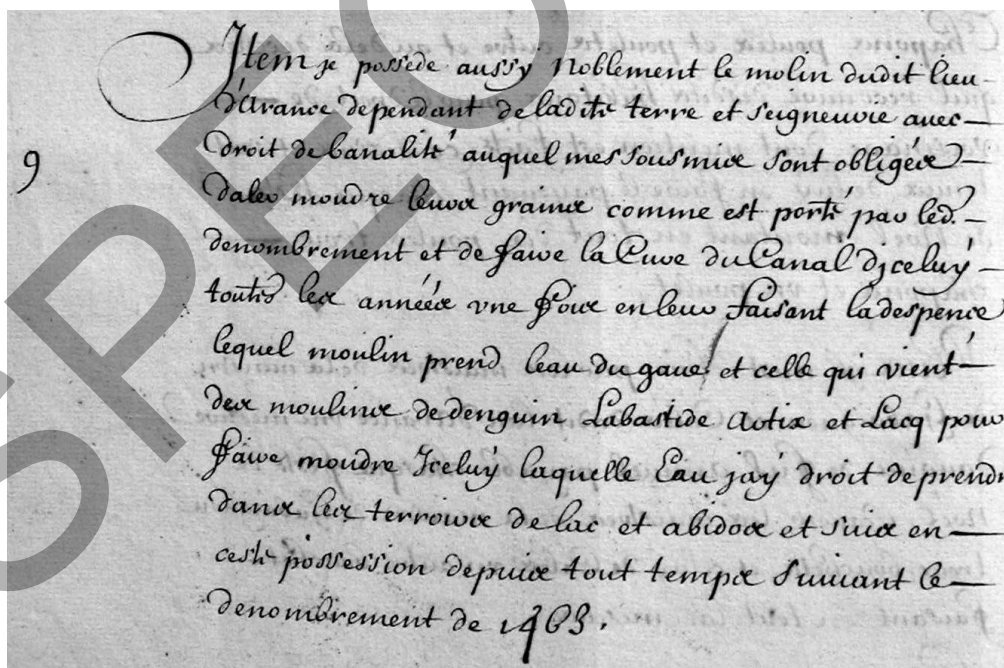 Item je possede aussy Noblement le molin dudit lieu
d'Arance dependant de ladite terre et seigneurie avec
droit de banalité auquel mes sousmis sont obligés
9
daler moudre leurs grains comme est porté par led.
denombrement et de faire la Cure du Canal diceluy
toutes les années une fois en leur faisant la despence
lequel moulin prend leau du gave et celle qui vient
des moulins de denguin Labastide Artix et Lacq pour
faire moudre Iceluy laquelle Eau jay droit de prendre
dans les terroirs de lac et abidos et suis en
ceste possession depuis tout temps suivant le
denombrement de 1463.
SPEC